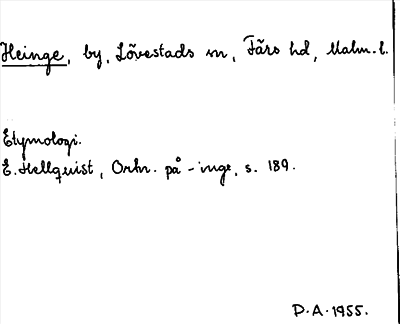 Heinge, by, Lövestads sn, Färs hd, Malm. l.
Etymologi.
E. Hellquist, Ortn. på -inge, s. 189.
D.A. 1955.